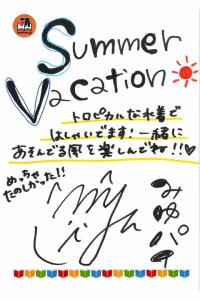 Summer
Vacation
トロピカルな水着で
はしゃいでます！一緒に
あそんでる風を楽しんでね!!♡
めっちゃ
たのしかった!!